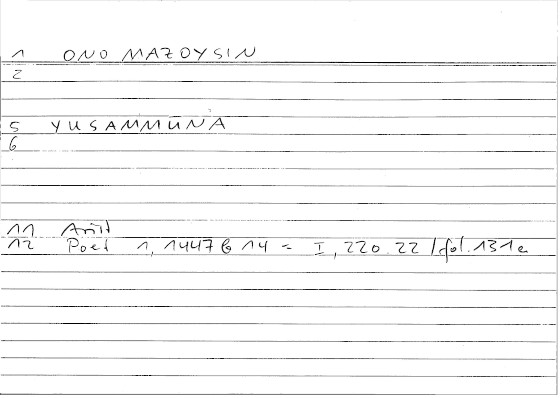 1 ONOMAZOYSIN
2
5 YUSAMMŪNA
6
11 Arist
12 Poet 1, 1447 b 14 = I, 220.22 / fol. 131a